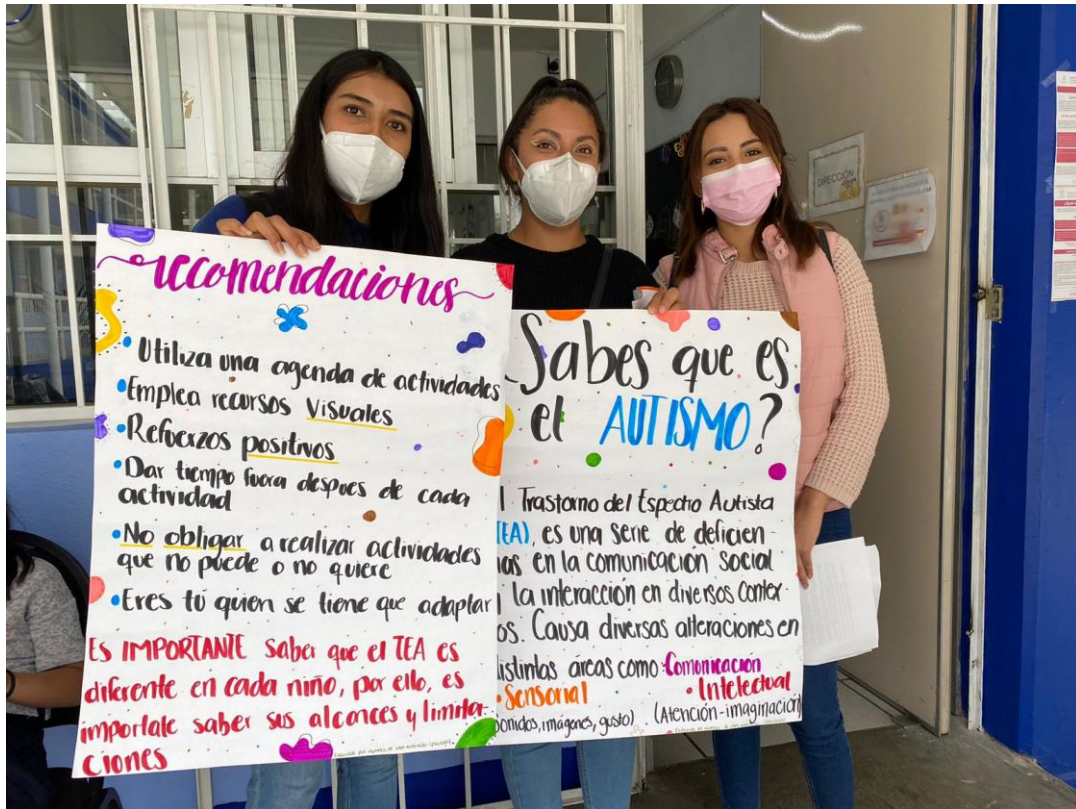 recomendaciones
• Utiliza una agenda de actividades
• Emplea recursos visuales
• Refuerzos positivos
• Dar tiempo fuera despues de cada
actividad
• No obligar a realizar actividades
que no puede o no quiere
• Eres tú quien se tiene que adaptar
Es IMPORTANTE saber que el TEA es
diferente en cada niño, por ello, es
importate saber sus alcances y limita-
ciones
Sabes que es
el AUTISMO?
l Trastorno del Espectro Autista
TEA), es una serie de deficien-
ias en la comunicación social
la interacción en diversos contex-
os. Causa diversas alteraciones en
istintas áreas como: • Comunicación
• Sensorial • Intelectual
sonidos, imágenes, gusto) (Atención-imaginación)
DIRECCIÓN